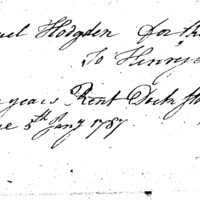 uel Hodgden for th
To Henry
years Rent Dock
5th Jany 1787